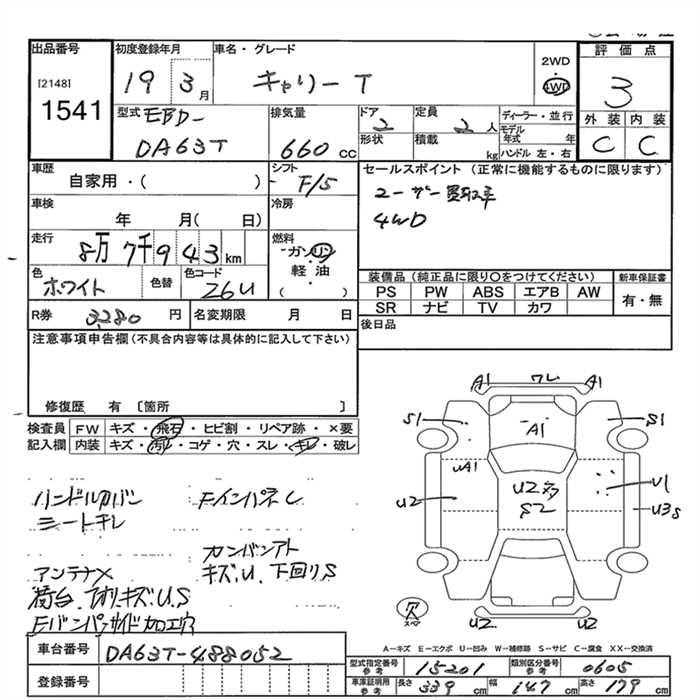 出品番号
[2148]
1541
初度登録年月
19 3月
車名・グレード
キャリー T
2WD
4WD
評価点
3
外装 内装
C C
型式 EBD-
DA63T
排気量
660 cc
ドア
2
形状
定員
2 人
積載
kg
ディーラー・並行
モデル年式 年
ハンドル 左・右
車歴
自家用・( )
シフト
F/5
セールスポイント (正常に機能するものに限ります)
ユーザー買取車
4WD
車検
年 月( 日)
冷房
走行
8万 7千 9 4 3 km
燃料
ガソリン
軽油
( )
色
ホワイト
色替
色コード
26U
装備品 (純正品に限り○をつけてください)
PS PW ABS エアB AW
SR ナビ TV カワ
新車保証書
有・無
R券 3,280 円
名変期限 月 日
後日品
注意事項申告欄(不具合内容等は具体的に記入して下さい)
修復歴 有 〔箇所 〕
検査員記入欄
FW キズ・飛石・ヒビ割・リペア跡・×要
内装 キズ・汚れ・コゲ・穴・スレ・キレ・破レ
ハンドルカバン
シートキレ
FインパネC
カンバンアト
アンテナX
キズ.U. 下回りS
荷台.アオリ.キズ.U.S
Fバンパサイド加エウワ
A1 ワレ A1
S1 A1 S1
UA1
U2 U2多 U1
S2 U3S
欠
スペア
U2 U2
A−キズ E−エクボ U−凹み W−補修跡 S−サビ C−腐食 XX−交換済
車台番号 DA63T-488052
登録番号
型式指定番号 参考 15201
類別区分番号 参考 0605
車庫証明用 参考 長さ 339 cm 幅 147 cm 高さ 179 cm